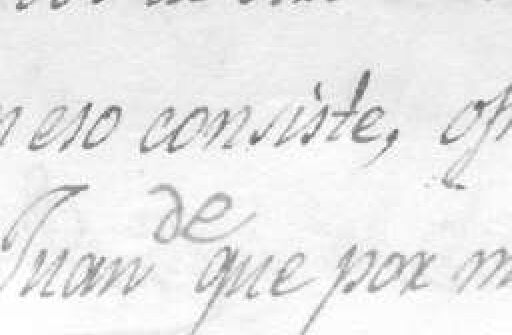 n eso consiste, of
de
Juan que por m